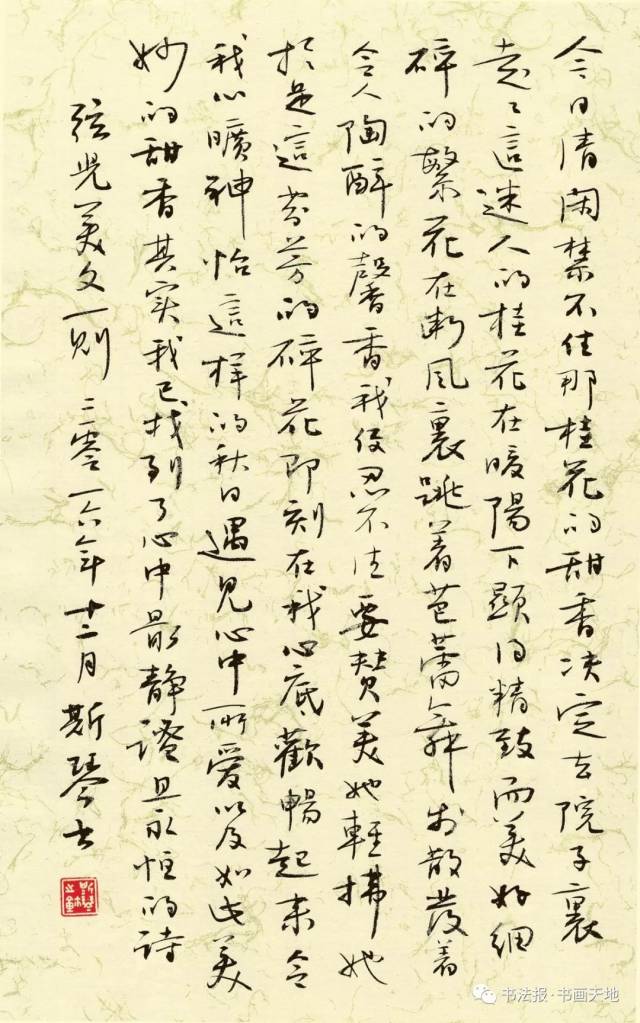 今日清闲禁不住那桂花的甜香决定去院子裏
走々這迷人的桂花在暖陽下顯得精致而美好細
碎的繁花在漸风裏跳着芭蕾舞於散發着
令人陶醉的馨香我便忍不住要赞美她輕拂她
於是這芬芳的碎花即刻在我心底歡暢起来令
我心曠神怡這样的秋日遇见心中所愛以及如此美
妙的甜香其实我已找到了心中最静謐且永恒的詩
弦光美文一则 二零一六年十二月 斯琴书
书法报·书画天地